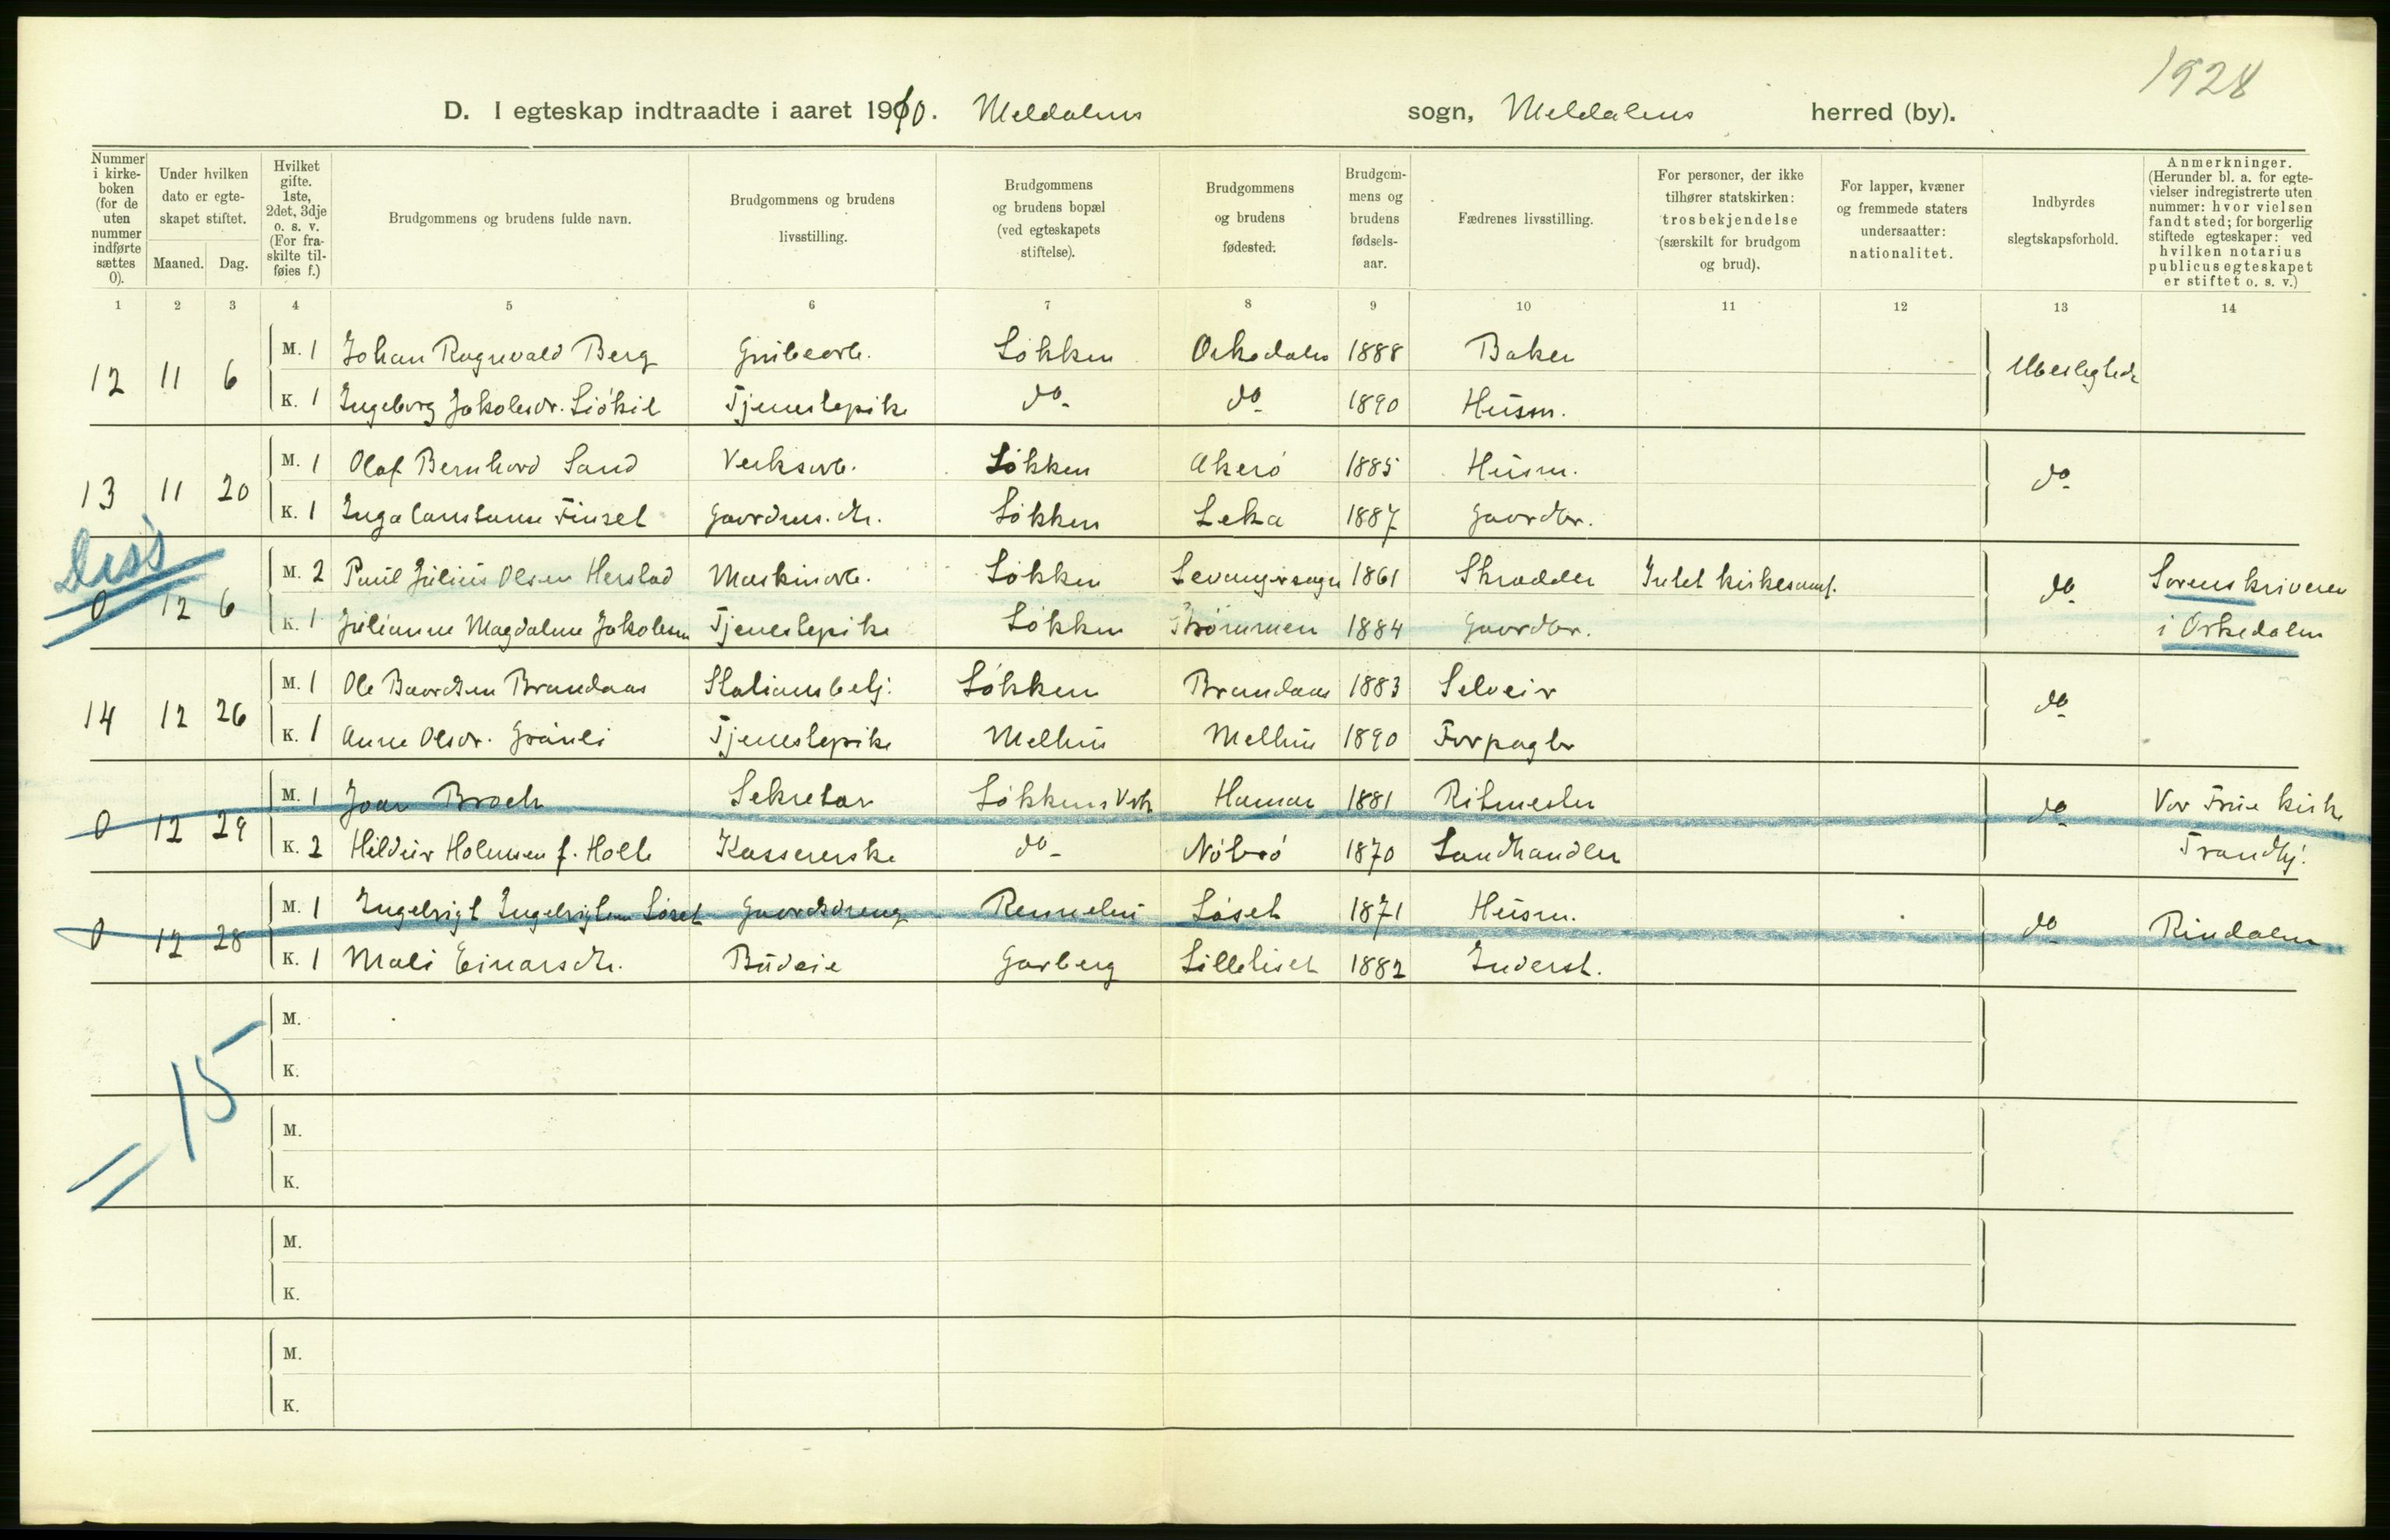 1928
D. I egteskap indtraadte i aaret 1910. Meldalens sogn, Meldalens herred (by).
Nummer i kirkeboken (for de uten nummer indførte sættes 0).
Under hvilken dato er egteskapet stiftet.
Maaned. Dag.
Hvilket gifte. 1ste, 2det, 3dje o. s. v. (For fraskilte tilføies f.)
Brudgommens og brudens fulde navn.
Brudgommens og brudens livsstilling.
Brudgommens og brudens bopæl (ved egteskapets stiftelse).
Brudgommens og brudens fødested.
Brudgommens og brudens fødselsaar.
Fædrenes livsstilling.
For personer, der ikke tilhører statskirken: trosbekjendelse (særskilt for brudgom og brud).
For lapper, kvæner og fremmede staters undersaatter: nationalitet.
Indbyrdes slegtskapsforhold.
Anmerkninger. (Herunder bl. a. for egtevielser indregistrerte uten nummer: hvor vielsen fandt sted; for borgerlig stiftede egteskaper: ved hvilken notarius publicus egteskapet er stiftet o. s. v.)
1 2 3 4 5 6 7 8 9 10 11 12 13 14
12 11 6 M. 1 Johan Ragnvald Berg Grubearb. Løkken Orkedalen 1888 Baker Ubeslegtede
K. 1 Ingeborg Jakobsdr. Do. do. 1890 Husm.
Tjenestepike
13 11 20 M. 1 Olaf Bernhard Sand Verksarb. Løkken Akerø 1885 Husm. do.
K. 1 Inga Constanse Finset Gaardms. dtr. Løkken Leka 1887 Gaardbr.
Diss
0 12 6 M. 2 Paul Julius Olsen Herstad Maskinarb. Løkken Levangersogn 1861 Skrædder Intet kirkesamf. do. Sorenskriveren
K. 1 Julianne Magdalene Jakobsen Tjenestepike Løkken Strømmen 1884 Gaardbr. i Orkedalen
14 12 26 M. 1 Ole Baardsen Brandaas Stationsbetj. Løkken Brandaas 1883 Selveier do.
K. 1 Anne Olsdr. Grønli Tjenestepike Melhus Melhus 1890 Forpagter
0 12 29 M. 1 Joan Broch Sekretær Løkkens Verk Hamar 1881 Ritmester do. Vor Frue kirke
K. 2 Hildur Holmsen f. Holte Kassererske do. 1870 Landhandler Trondhj.
0 12 28 M. 1 Ingebrigt Ingebrigtsen Løset Gaardsdreng Løset 1871 Husm. do. Rindalen
K. 1 Mali Einarsdtr. Budeie Garberg Lilleliset 1882 Inderst.
15
M.
K.
M.
K.
M.
K.
M.
K.